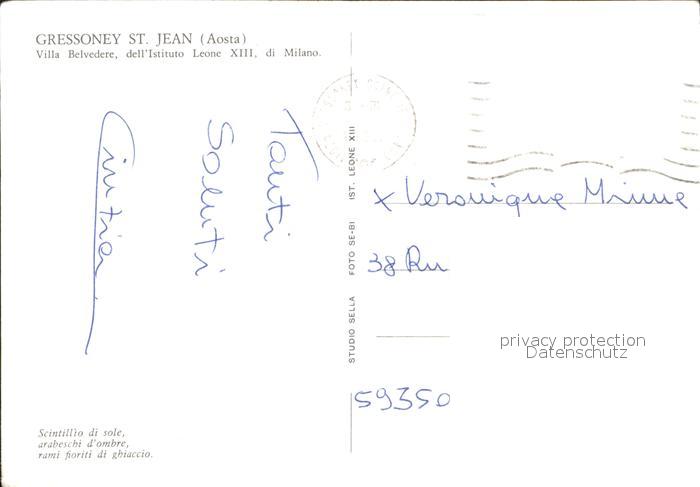 GRESSONEY ST. JEAN (Aosta)
Villa Belvedere, dell'Istituto Leone XIII, di Milano.
Tanti
Saluti
Cintia
Scintillìo di sole,
arabeschi d'ombre,
rami fioriti di ghiaccio.
STUDIO SELLA FOTO SE-BI IST. LEONE XIII
x Veronique Mimme
38 Ru
privacy protection
Datenschutz
59350